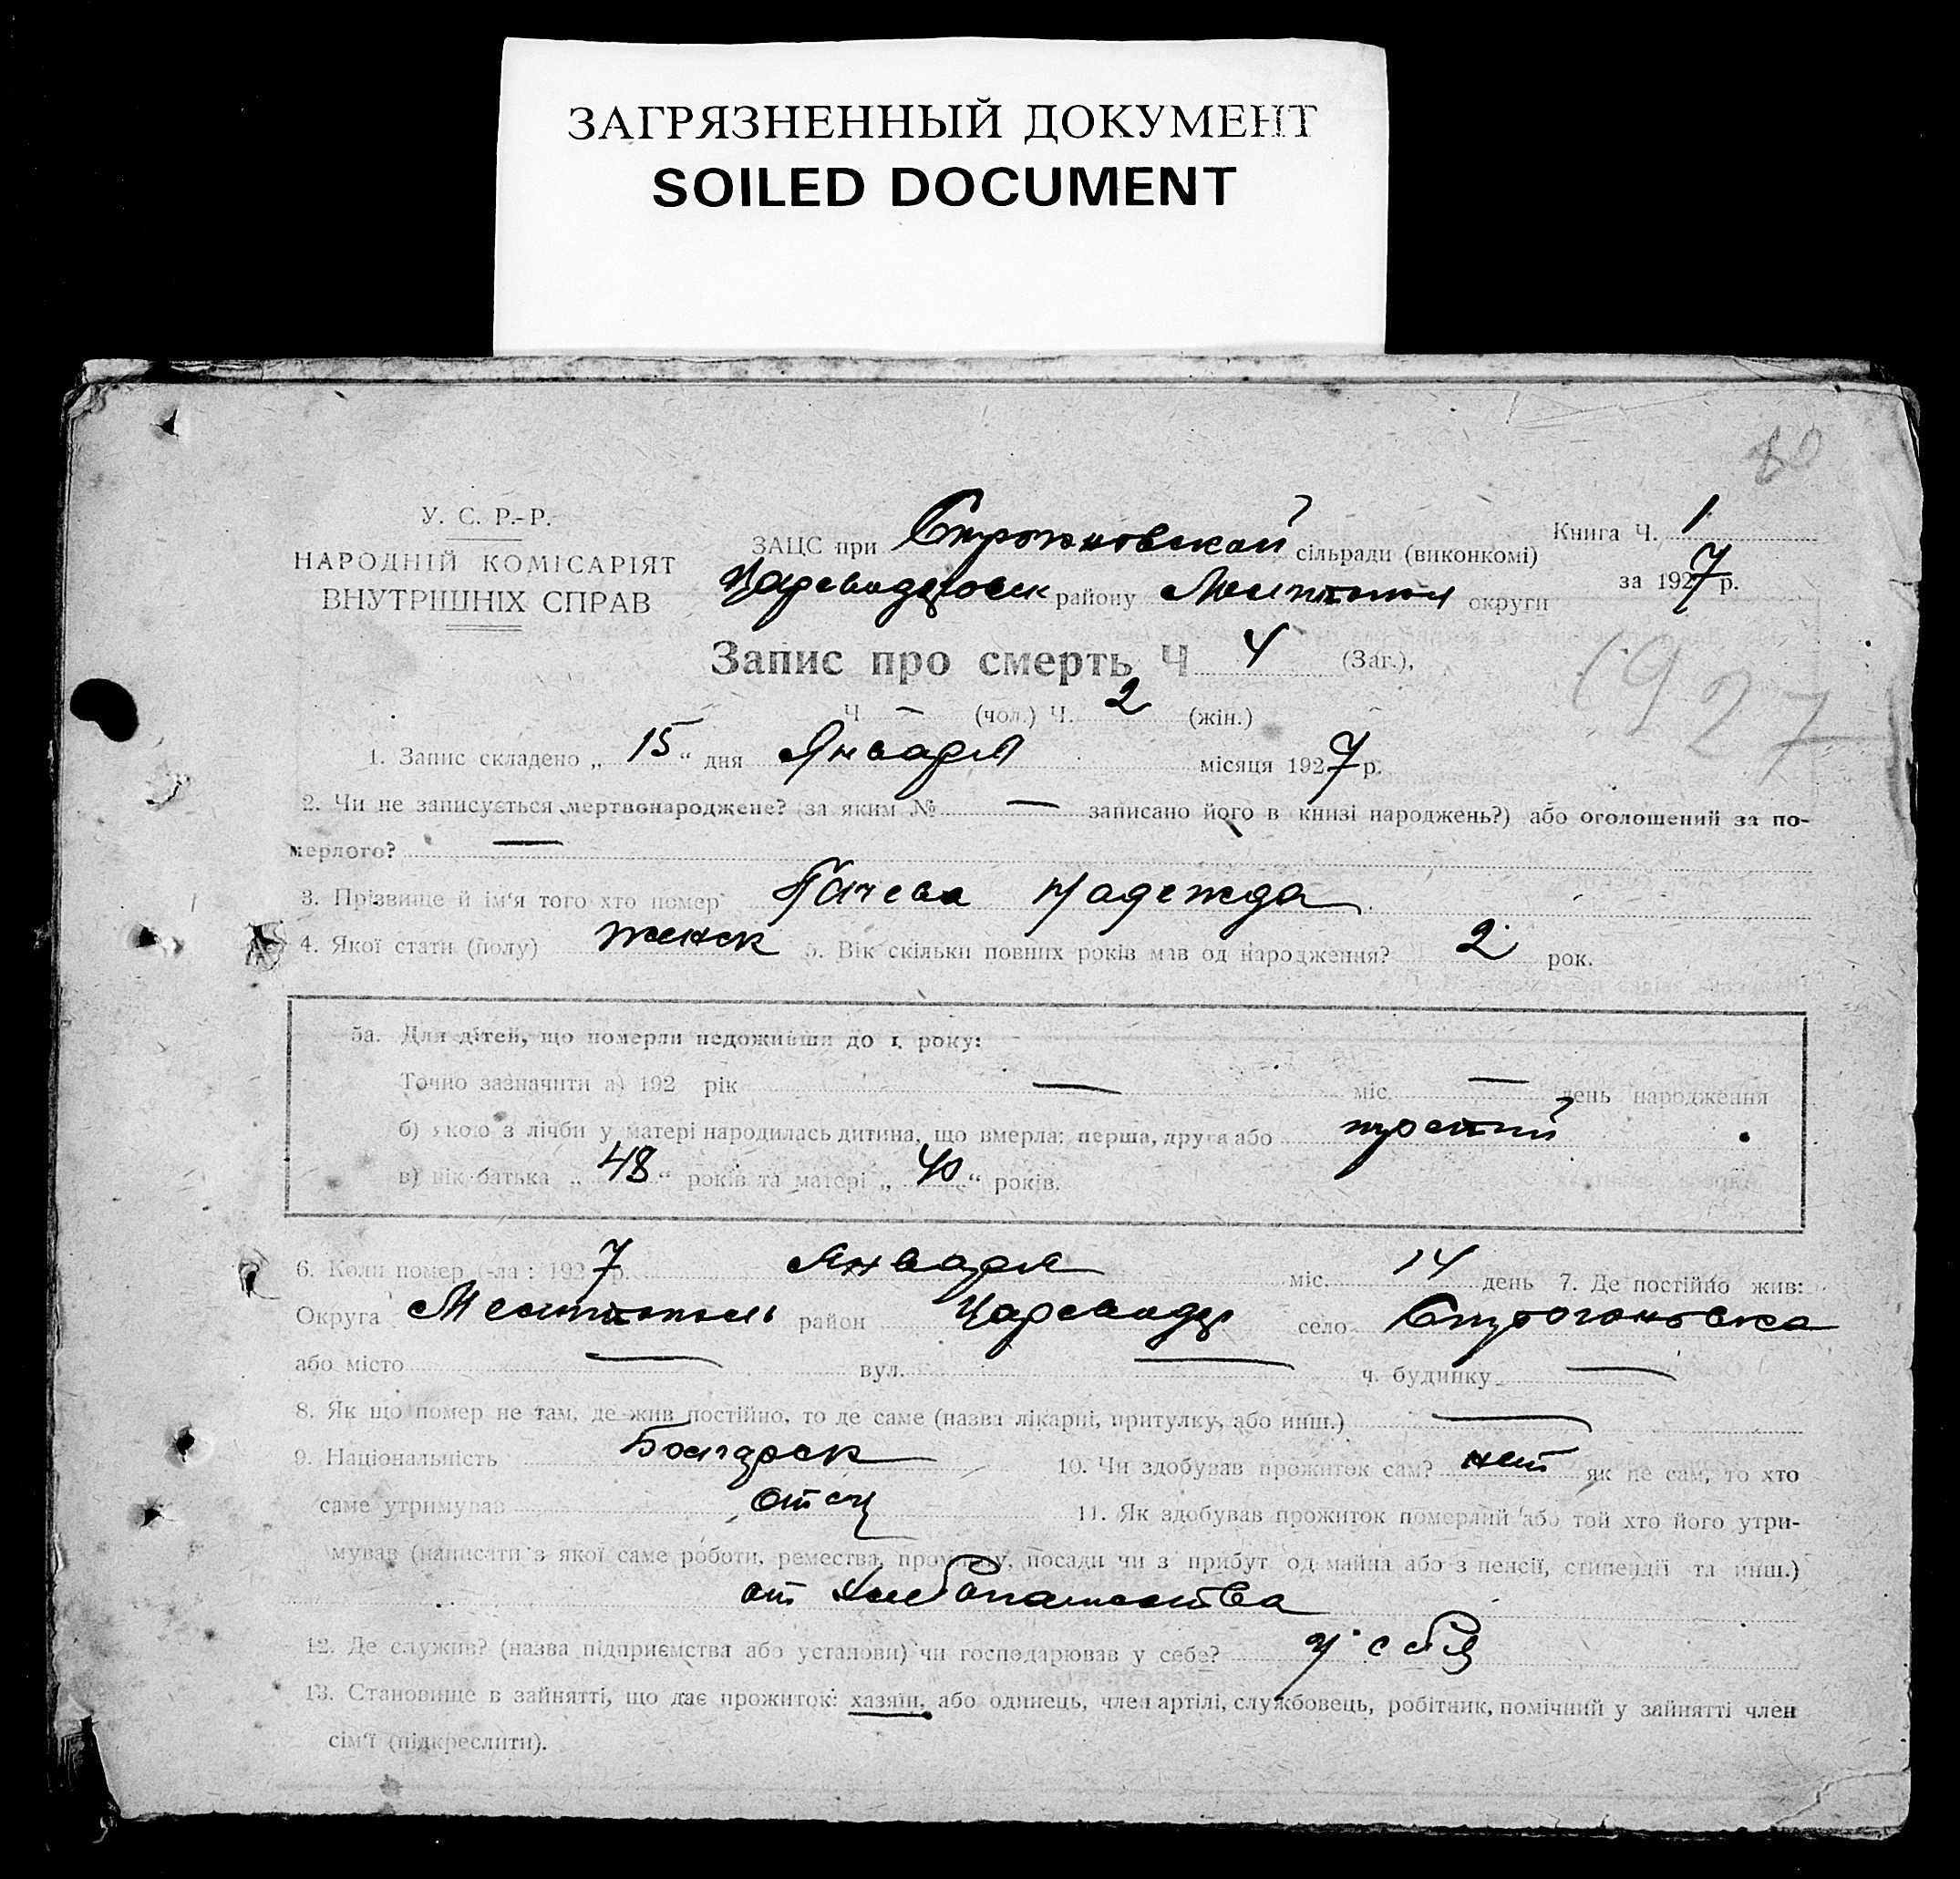 ЗАГРЯЗНЕННЫЙ ДОКУМЕНТ
SOILED DOCUMENT
80
У. С. Р.-Р.
НАРОДНІЙ КОМІСАРІЯТ
ВНУТРІШНІХ СПРАВ
ЗАЦС при Строгановской сільради (виконкомі)
Книга Ч. 1
району округи
за 1927 р.
1927
Запис про смерть Ч 4 (Заг.),
Ч — (чол.) Ч. 2 (жін.)
1. Запис складено „ 15 “ дня Января місяця 1927 р.
2. Чи не записується мертвонароджене? (за яким № — записано його в книзі народжень?) або оголошений за по-
мерлого? —
3. Прізвище й ім'я того хто помер Гачева Надежда
4. Якої стати (полу) женск 5. Вік скільки повних років мав од народження? 2 рок.
5а. Для дітей, що померли недоживши до 1. року:
Точно зазначити а) 192 рік — міс. — день народження
б) якою з лічби у матері народилась дитина, що вмерла: перша, друга або третий
в) вік батька „ 48 “ років та матері „ 40 “ років.
6. Коли помер (-ла : 1927 р. Января міс. 14 день 7. Де постійно жив:
Округа Мелитополь район Царевод село Строгановка
або місто — вул. — ч. будинку —
8. Як що помер не там, де жив постійно, то де саме (назва лікарні, притулку, або инш.) —
9. Національність Болгарск 10. Чи здобував прожиток сам? нет як не сам, то хто
саме утримував отец 11. Як здобував прожиток померлий або той хто його утри-
мував (написати з якої саме роботи, ремества, промислу, посади чи з прибут од майна або з пенсії, стипендії та инш.)
от хлебопашества
12. Де служив? (назва підприємства або установи) чи господарював у себе? у себя
13. Становище в зайнятті, що дає прожиток: хазяїн, або одинець, член артілі, службовець, робітник, помічний у зайнятті член
сім'ї (підкреслити).